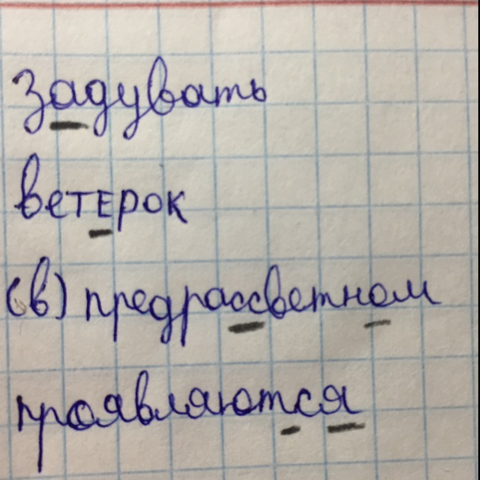 Задувать
ветерок
(в) предрассветном
проявляются